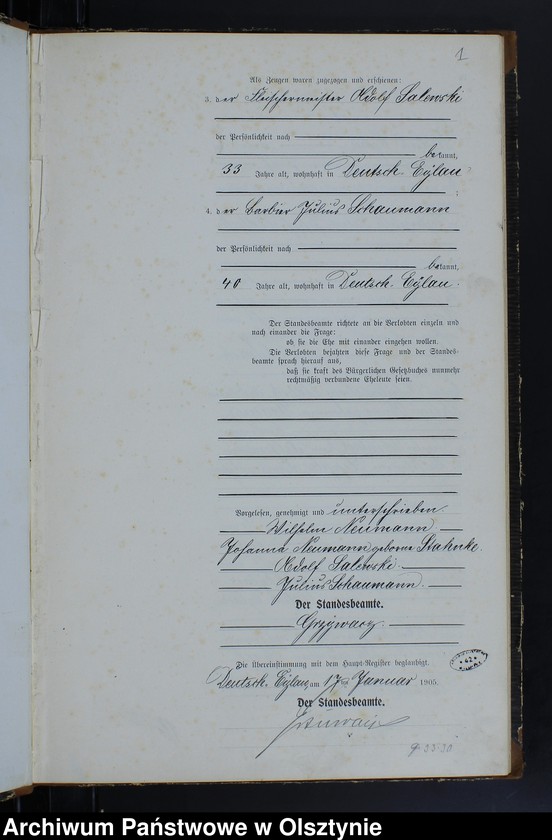 1
Als Zeugen waren zugezogen und erschienen:
3. der Fleischermeister Adolf Salewski
der Persönlichkeit nach
bekannt,
33 Jahre alt, wohnhaft in Deutsch Eylau
;
4. der Barbier Julius Schaumann
der Persönlichkeit nach
bekannt,
40 Jahre alt, wohnhaft in Deutsch Eylau.
Der Standesbeamte richtete an die Verlobten einzeln und
nach einander die Frage:
ob sie die Ehe mit einander eingehen wollen.
Die Verlobten bejahten diese Frage und der Standes-
beamte sprach hierauf aus,
daß sie kraft des Bürgerlichen Gesetzbuches nunmehr
rechtmäßig verbundene Eheleute seien.
Vorgelesen, genehmigt und unterschrieben
Wilhelm Neumann
Johanna Neumann geborne Stahnke.
Adolf Salewski.
Julius Schaumann.
Der Standesbeamte.
Grzywacz.
Die Übereinstimmung mit dem Haupt-Register beglaubigt.
Deutsch. Eylau, am 17ten Januar 1905.
Der Standesbeamte.
* 42 *
Archiwum Państwowe w Olsztynie